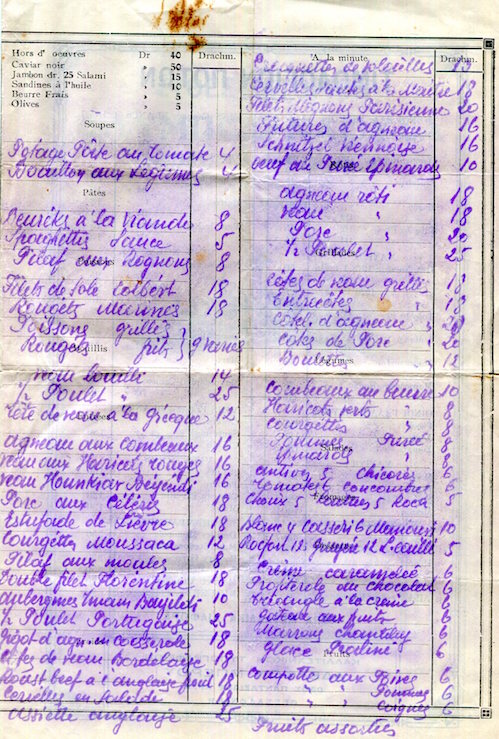 Hors d' oeuvres Dr 40
Caviar noir » 50
Jambon dr. 25 Salami » 15
Sandines à l'huile » 10
Beurre Frais » 5
Olives » 5
Drachm.
Soupes
Potage Pâte au tomate 4
Bouillon aux Légumes 4
Pâtes
Beuréks à la Viande 8
Spaghettis Sauce 5
Pilaf aux Rognons 8
Filets de Sole Colbert 18
Rougets Marinés 18
Poissons grillés
Rougets frits
Veau bouilli 14
½ Poulet " 25
Tête de veau à la grecque 12
agneau aux Combeaux 16
Veau aux Haricots rouges 16
Veau Hounkiar Beyendi 16
Porc aux Céléris 18
Estufade de Lièvre 18
Courgettes Moussaca 12
Pilaf aux moules 8
Double filet Florentine 18
aubergines Imam Bayildi 10
½ Poulet Portugaise 25
gigot d'agn. en casserole 18
Côtes de Veau Bordelaise 18
Roast beef à l'anglaise froid 18
Cervelles en Salade 18
assiette anglaise 25
A la minute
Drachm.
Cervelles
Filets Mignons Parisienne 20
d'agneau 16
Schnitzel Viennoise 16
beuf au Purée Epinards 10
agneau rôti 18
Veau " 18
Porc "
½ Poulet " 25
Côtes de Veau grillé 18
Entrecôtes " 18
Côtel. d'agneau " 20
Cotes de Porc " 20
12
Légumes
Combeaux au beurre 10
Haricots verts " 8
Courgettes " 8
Pommes Purée 8
Epinards " 8
Salades
antives 5 chicorés 6
Tomates 6 concombres 6
Choux 5 Laitues 5 Roca 5
Fromages
Blanc 4 Casséri 6 Menouri 10
Rocfort 18 gruyère 12 L. caillé 5
Crème caramelée 6
Profiterole au chocolat 6
Triangle à la crème 6
gateau aux fruits 6
Marrons chantilly 6
glace Praline 6
Fruits
Compotte aux Poires 6
" " Pommes 6
" " Coignes 6
Fruits assortis